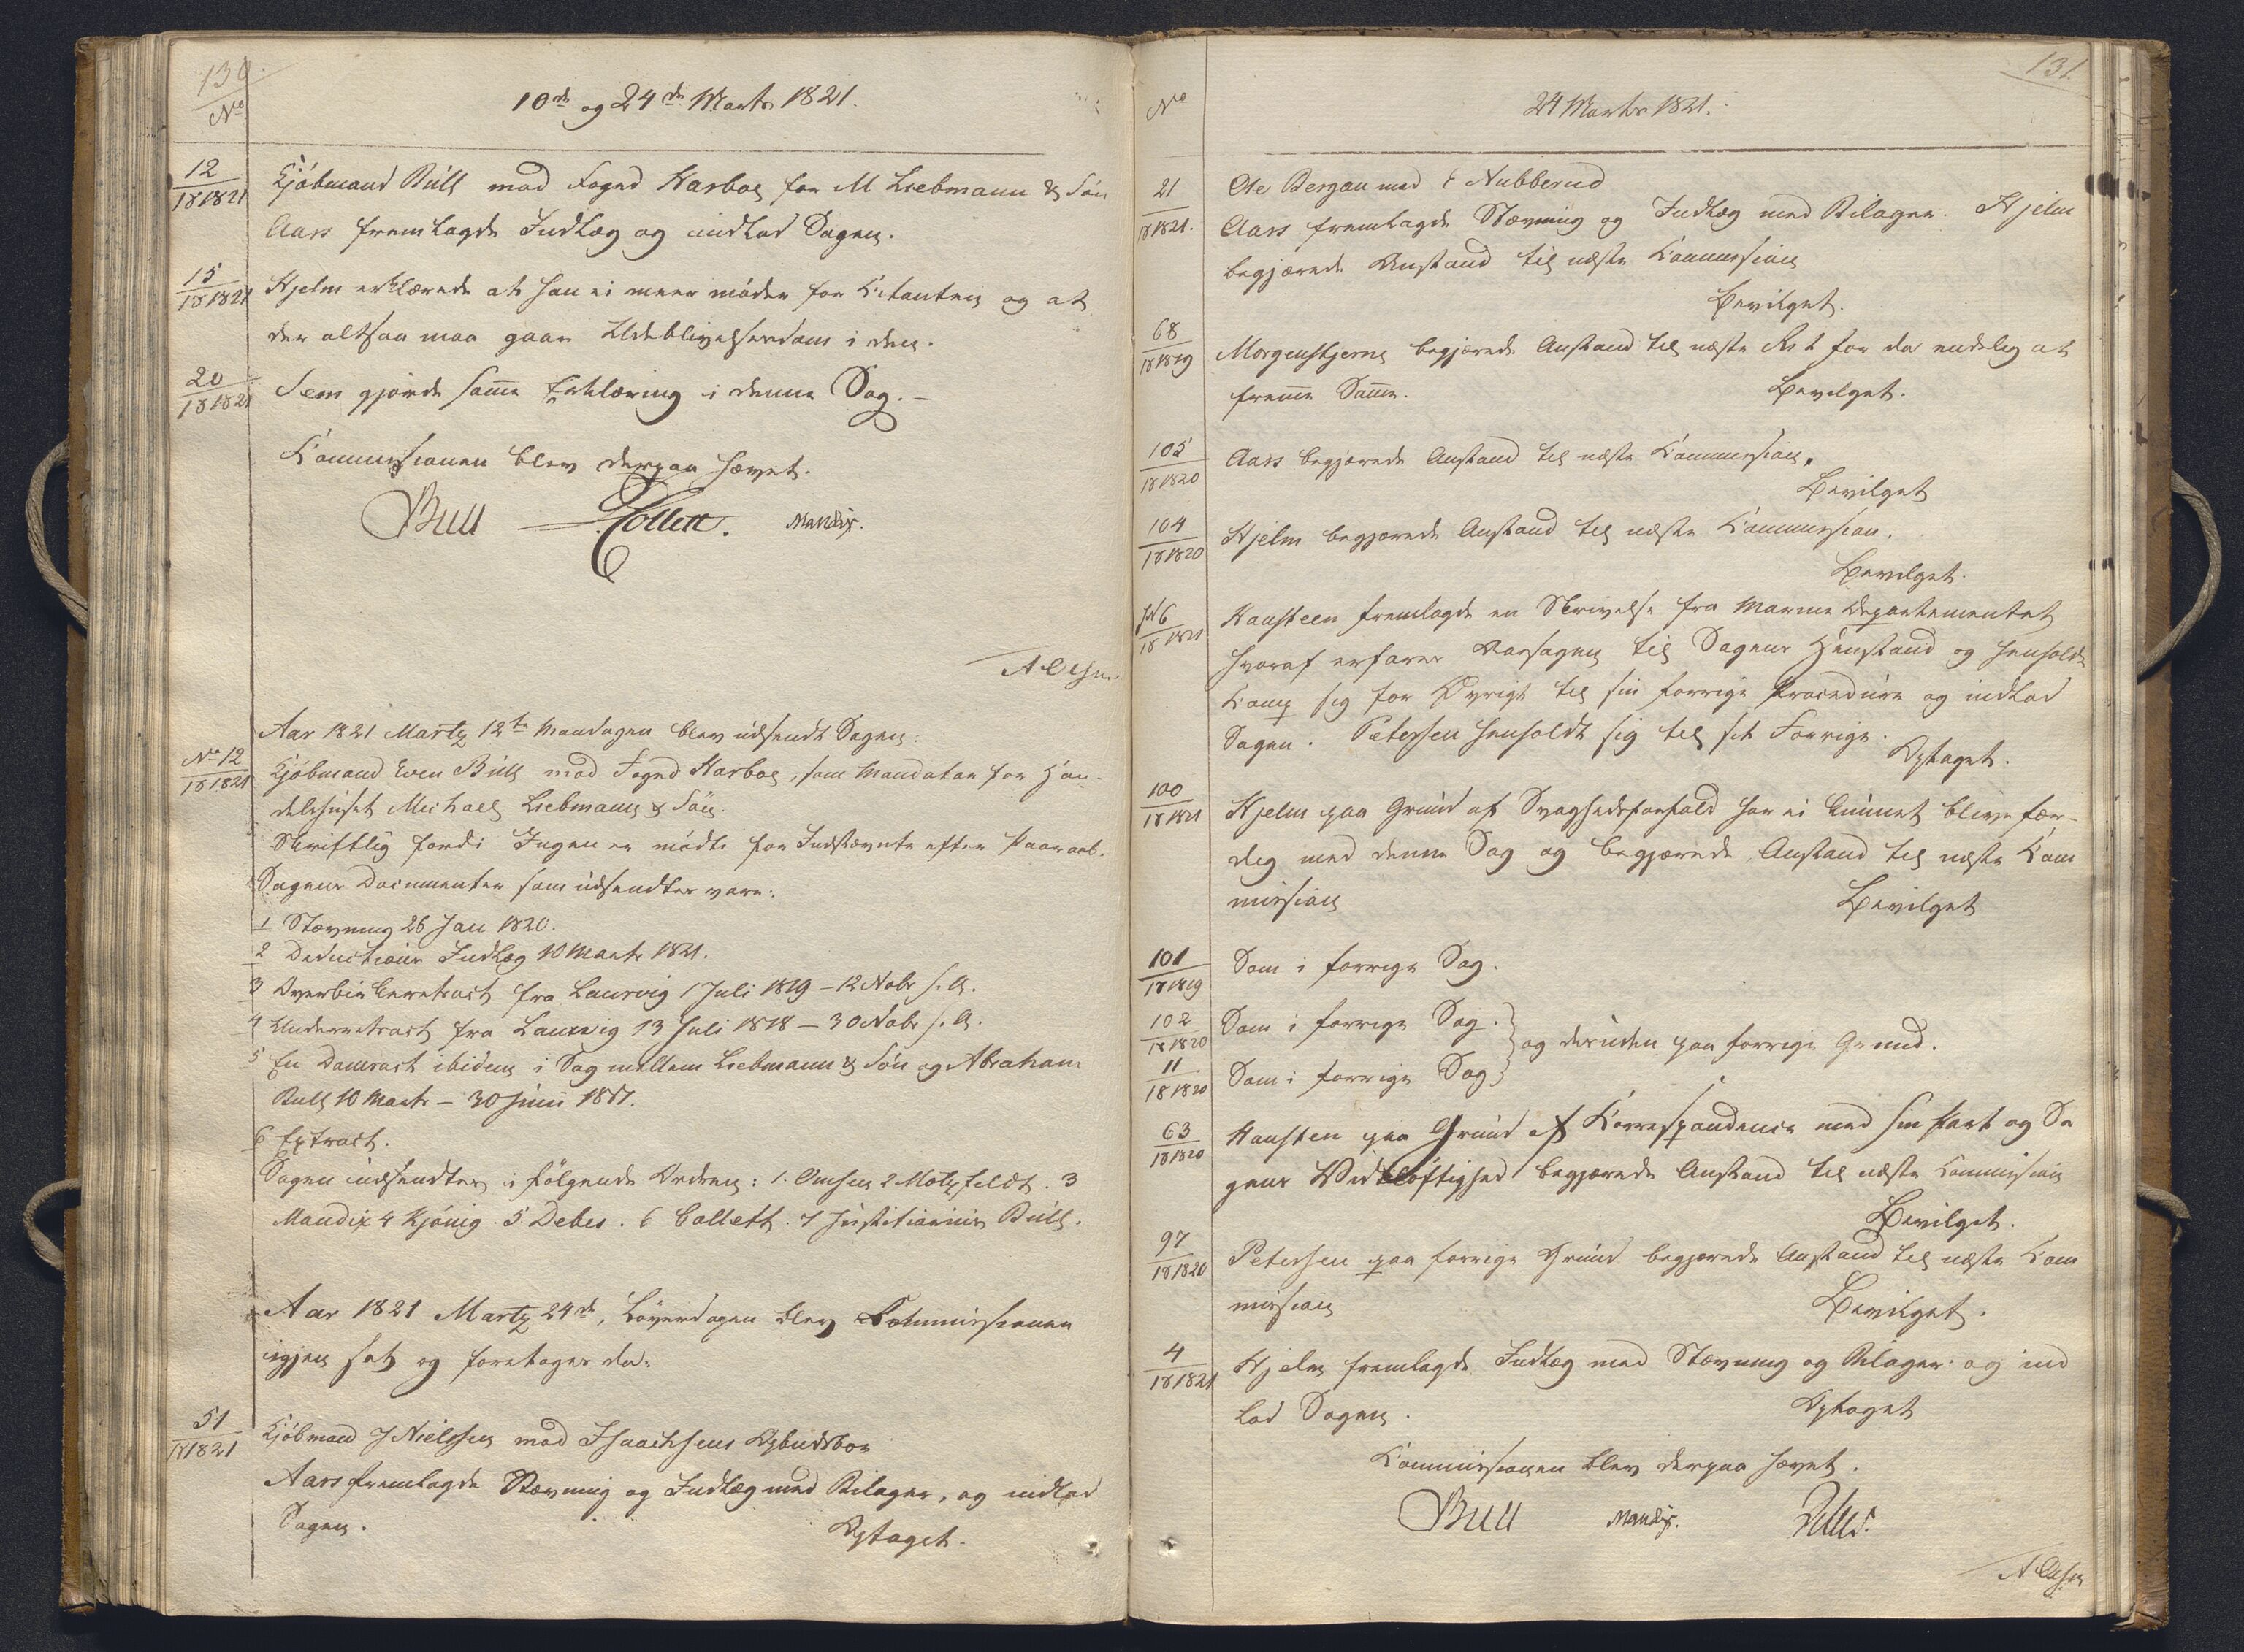 130.
No
10de og 24de Marts 1821.
12
18 1821
Kjöbmand Bull mod Foged Harboe for M Liebmann & Sön
Aars fremlagde Indlæg og indlod Sagen.
15
18 1821
Hjelm erklærede at han ei meer möder for Citanten og at
der altsaa maa gaae Udeblivelsesdom i den.
20
18 1821
Sem gjorde samme Erklæring i denne Sag.
Commissionen blev derpaa hævet.
Bull Collett. Mandix.
Aar 1821 Martz 12te Mandagen blev udsendt Sagen:
No 12
18 1821
Kjöbmand Even Bull mod Foged Harboe, som Mandatar for Han-
delshuset Michael Liebmann & Sön.
Skriftlig fordi Ingen er mödt for Indstævnte efter Paaraab.
Sagens Documenter som udsendtes vare:
1 Stævning 26 Jan 1820.
2 Deductions Indlæg 10 Marts 1821.
3 Overbiè Retsact fra Laurvig 1 Juli 1819 – 12 Nobr s. A.
4 Underretsact fra Laurvig 13 Juli 1818 – 30 Nobr s. A.
5 En Domsact ibidem i Sag mellem Liebmann & Sön og Abraham
Bull 10 Marts – 30 Junii 1817.
6 Extract.
Sagen udsendtes i fölgende Orden: 1. Omsen 2 Motzfeldt. 3
Mandix 4 Kjönig. 5 Debes. 6 Collett. 7 Justitiarius Bull.
Aar 1821 Martz 24de, Löverdagen blev Commissionen
igjen sat og foretages da:
51
18 1821
Kjöbmand J Nielsen mod Isaachsens Opbudsboe
Aars fremlagde Stævning og Indlæg med Bilager, og indlod
Sagen.
Optaget.
131.
No
24 Marts 1821.
21
18 1821.
Ole Bergan mod E Nubberud
Aars fremlagde Stævning og Indlæg med Bilager. Hjelm
begjærede Anstand til næste Commission
Bevilget.
68
18 1819
Morgenstjerne begjærede Anstand til næste Ret for da endelig at
fremme Samme.
Bevilget.
105
18 1820
Aars begjærede Anstand til næste Commission.
Bevilget
104
18 1820
Hjelm begjærede Anstand til næste Commission.
Bevilget.
18 1821
Hansteen fremlagde en Skrivelse fra Marine Departementet
hvoraf erfares Aarsagen til Sagens Henstand og henholdt
Comp sig for Övrigt til sin forrige Procedure og indlod
Sagen. Petersen henholdt sig til sit Forrige.
Optaget.
100
18 1821
Hjelm paa Grund af Svaghedsforfald har ei kunnet blive fær-
dig med denne Sag og begjærede Anstand til næste Com
mission
Bevilget
101
18 1819
Som i forrige Sag.
102
18 1820
Som i forrige Sag.
og desuden paa forrige Grund.
11
18 1820
Som i forrige Sag
63
18 1820
Hansten paa Grund af Correspondence med sin Part og Sa
gens Vidtlöftighed begjærede Anstand til næste Commission
Bevilget.
97
18 1820
Petersen paa forrige Grund begjærede Anstand til næste Com
mission
Bevilget.
4
18 1821
Hjelm fremlagde Indlæg med Stævning og Bilager og ind
lod Sagen.
Optaget
Commissionen blev derpaa hævet.
Bull Mandix.